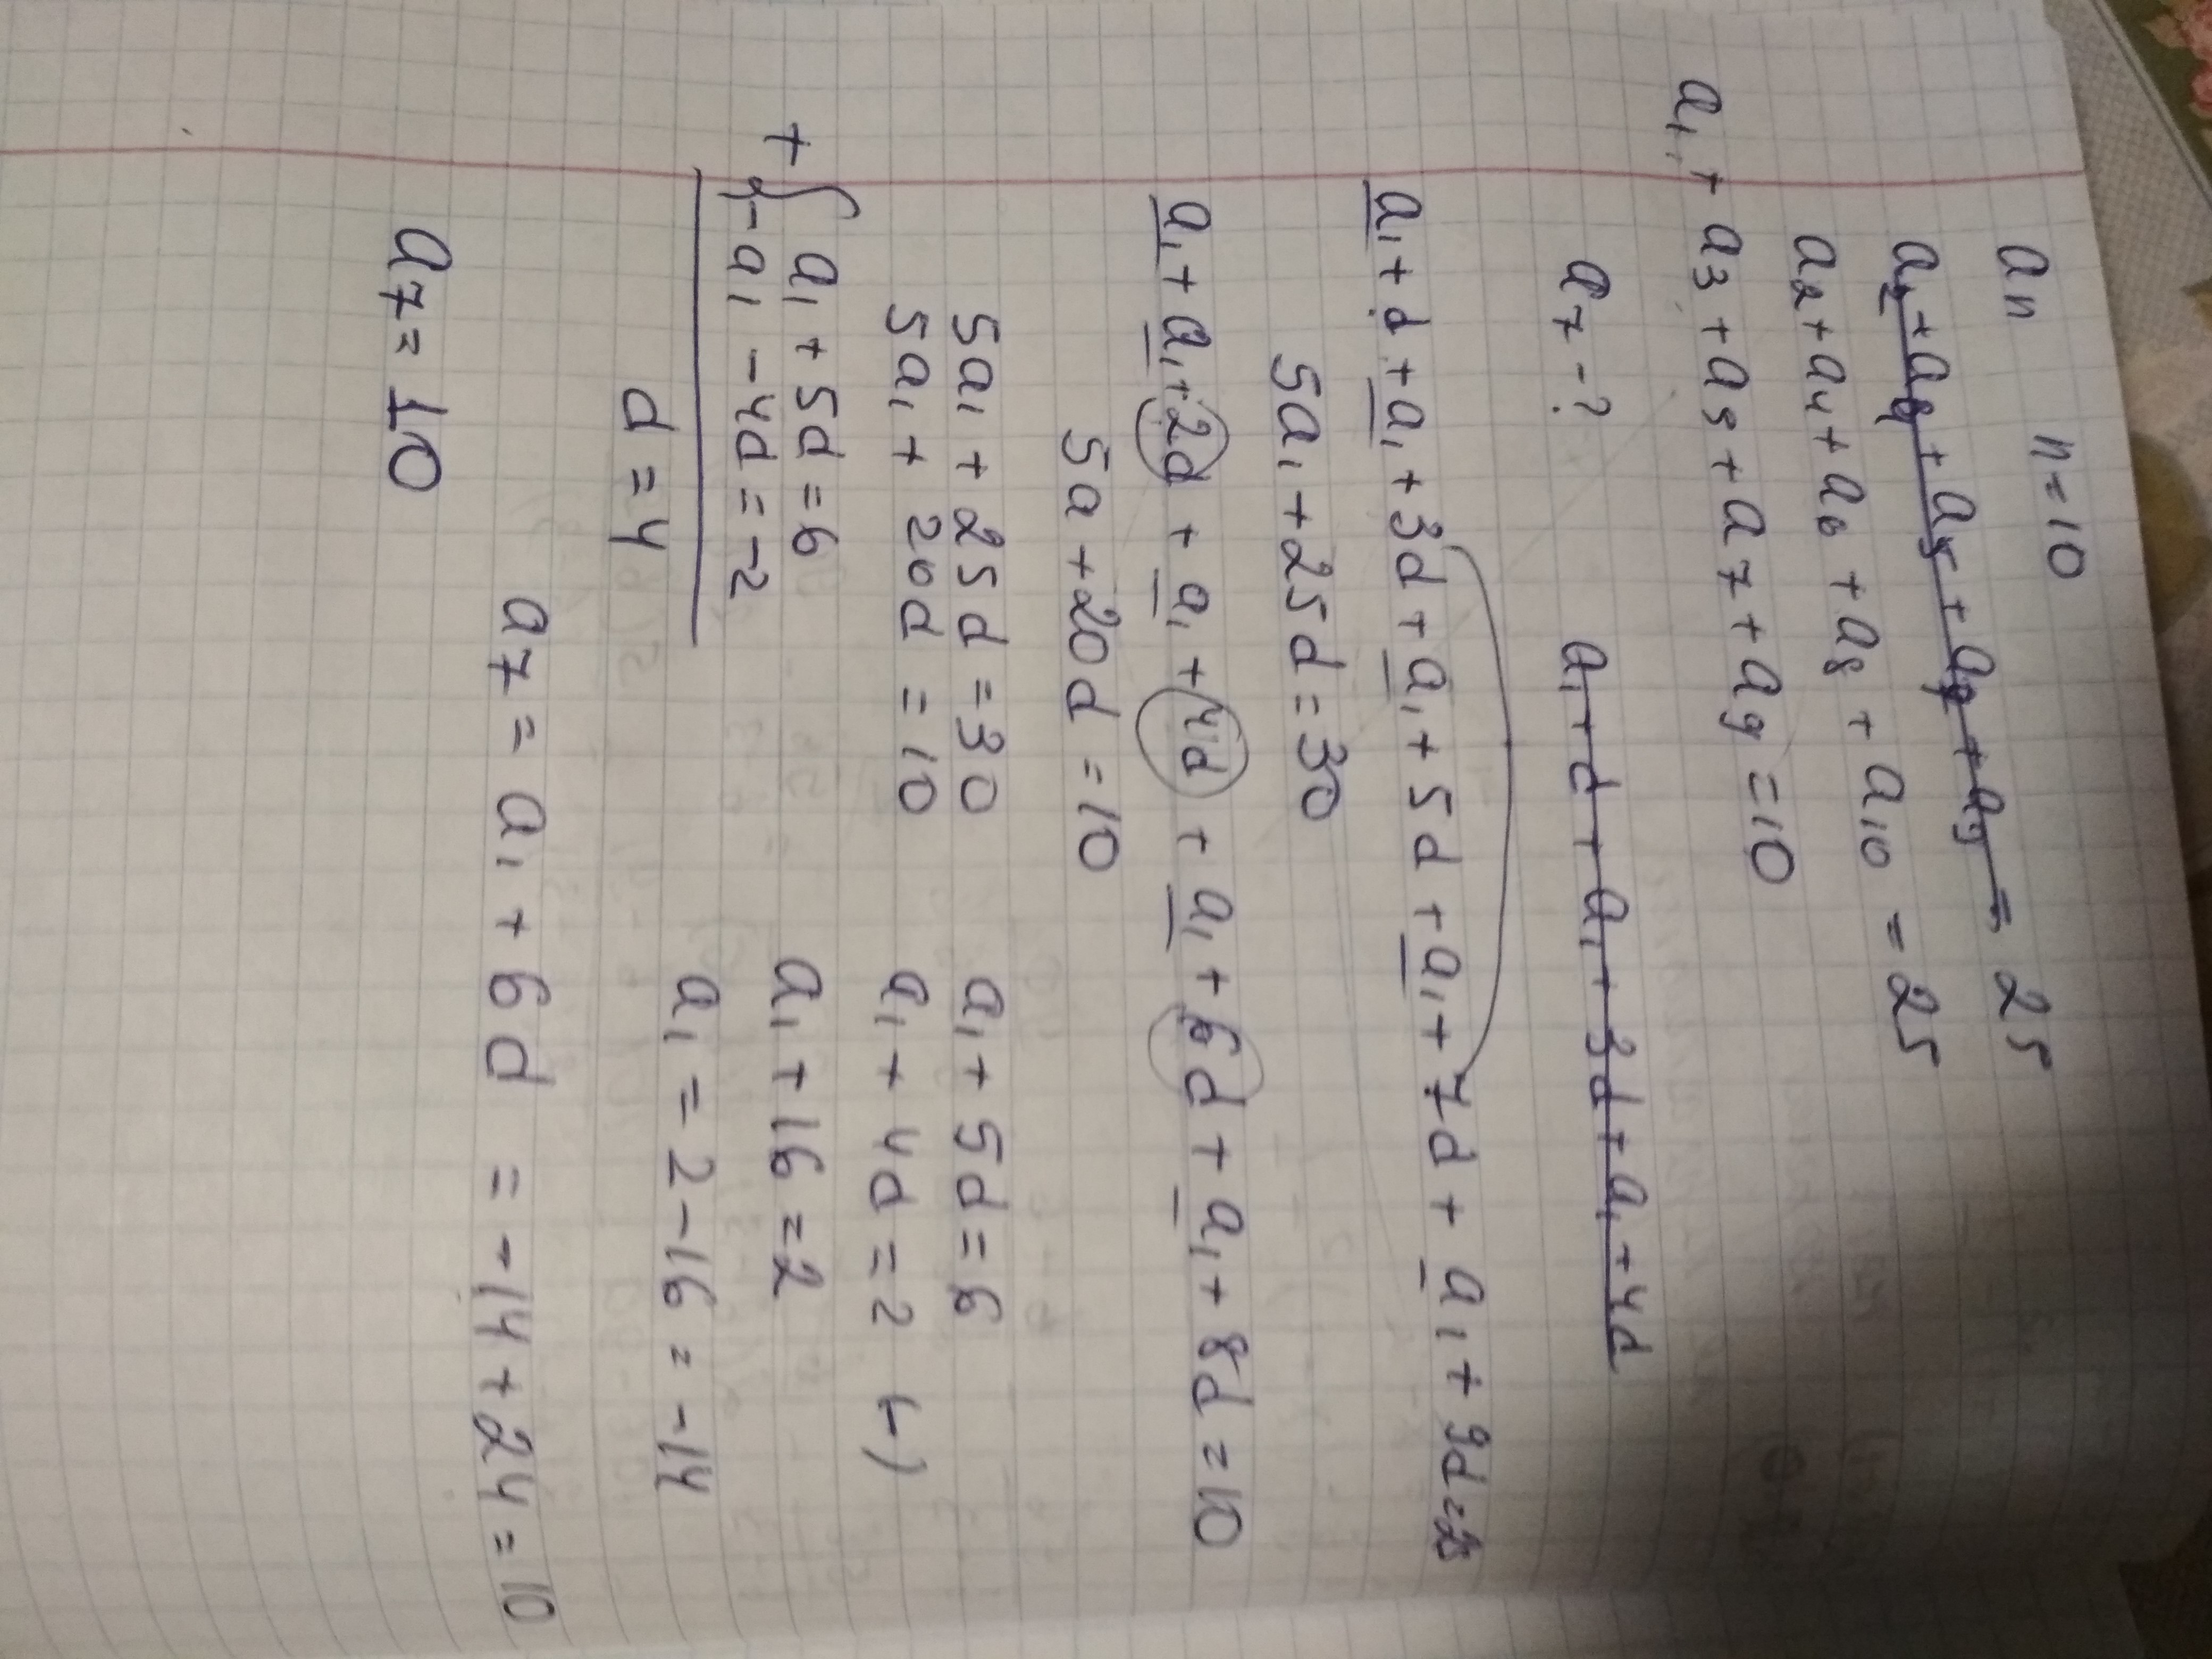 an n=10
a2+a4+a5+a7+a9= 25
a2+a4+a6+a8+a10 = 25
a1+a3+a5+a7+a9=10
a7-? a1+d+a1+3d+a1+4d
a1+d+a1+3d+a1+5d+a1+7d+a1+9d=25
5a1+25d=30
a1+a1+2d+a1+4d+a1+6d+a1+8d=10
5a+20d=10
5a1+25d=30 a1+5d=6
5a1+20d=10 a1+4d=2 (-)
+{ a1+5d=6 a1+16=2
-a1-4d=-2 a1=2-16=-14
d=4
a7=a1+6d=-14+24=10
a7=10